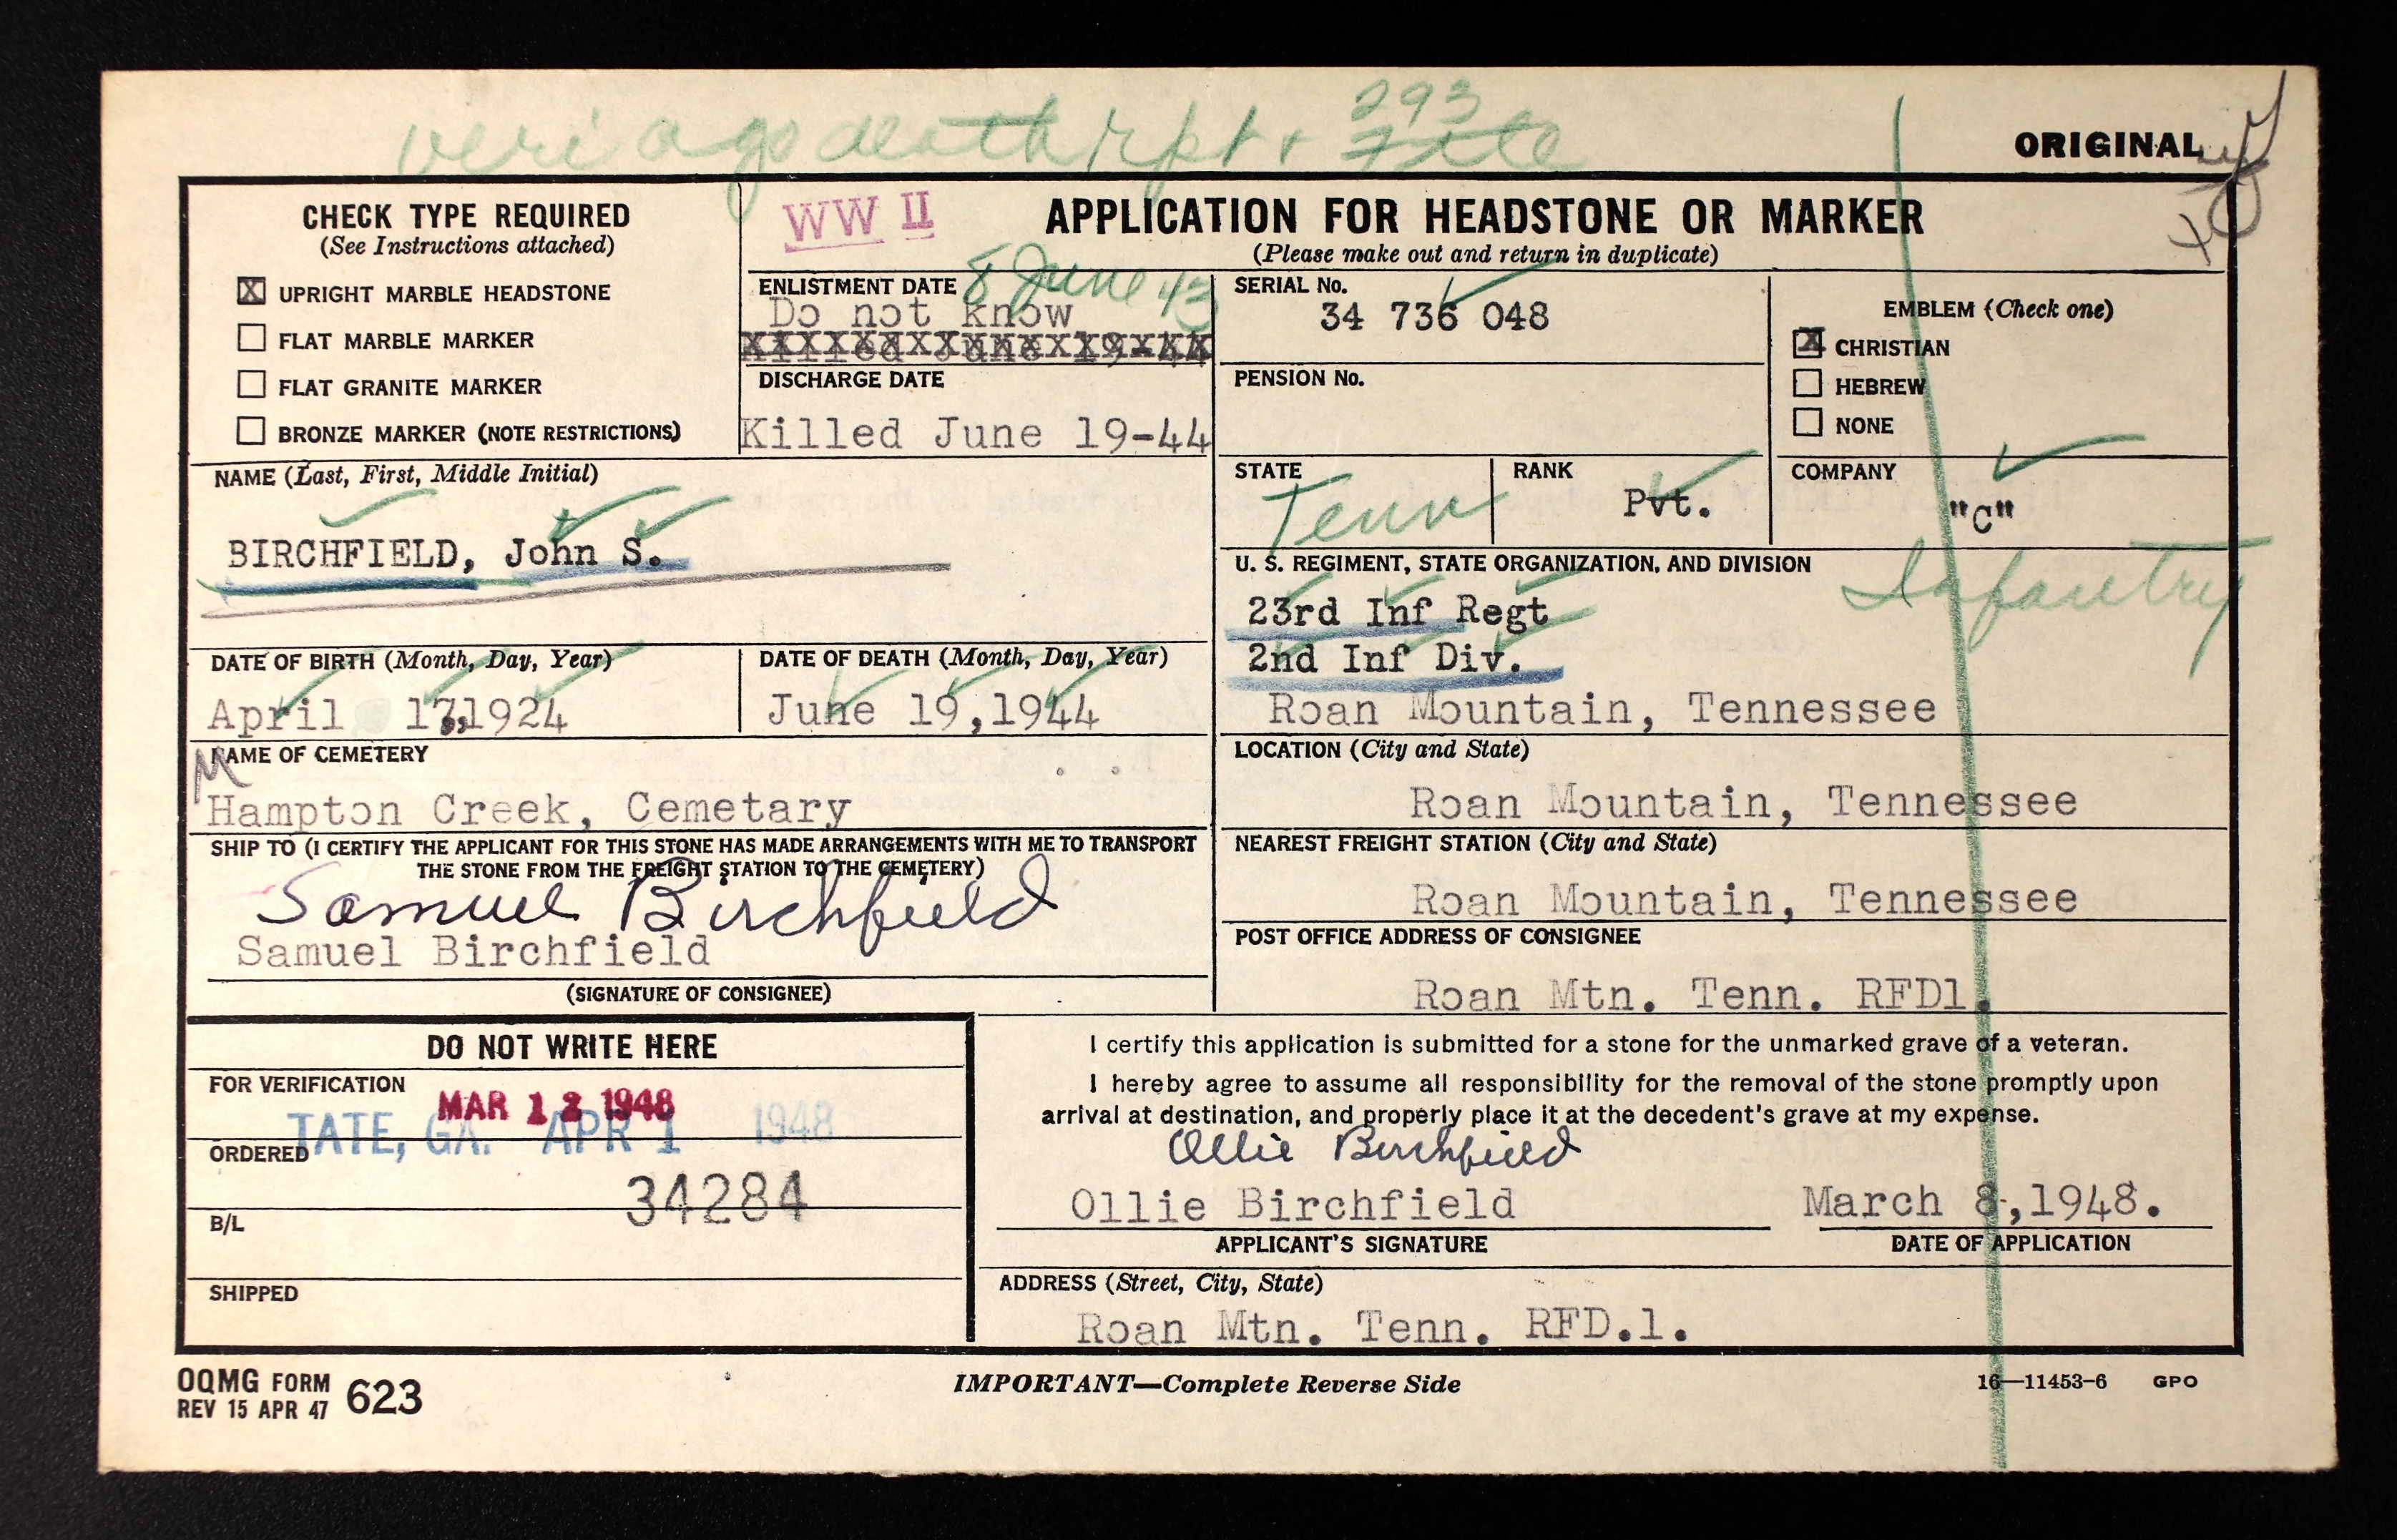 veri ago death rpt + 293 File
ORIGINAL
CHECK TYPE REQUIRED
(See Instructions attached)
X UPRIGHT MARBLE HEADSTONE
FLAT MARBLE MARKER
FLAT GRANITE MARKER
BRONZE MARKER (NOTE RESTRICTIONS)
WW II
APPLICATION FOR HEADSTONE OR MARKER
(Please make out and return in duplicate)
ENLISTMENT DATE 8 June 43
Do not know
Killed June 19-44
DISCHARGE DATE
Killed June 19-44
SERIAL No.
34 736 048
PENSION No.
EMBLEM (Check one)
X CHRISTIAN
HEBREW
NONE
NAME (Last, First, Middle Initial)
BIRCHFIELD, John S.
STATE
Tenn
RANK
Pvt.
COMPANY
"C"
U. S. REGIMENT, STATE ORGANIZATION, AND DIVISION
Infantry
23rd Inf Regt
2nd Inf Div.
Roan Mountain, Tennessee
DATE OF BIRTH (Month, Day, Year)
April 17,1924
DATE OF DEATH (Month, Day, Year)
June 19,1944
NAME OF CEMETERY
Hampton Creek, Cemetary
LOCATION (City and State)
Roan Mountain, Tennessee
SHIP TO (I CERTIFY THE APPLICANT FOR THIS STONE HAS MADE ARRANGEMENTS WITH ME TO TRANSPORT
THE STONE FROM THE FREIGHT STATION TO THE CEMETERY)
Samuel Birchfield
Samuel Birchfield
(SIGNATURE OF CONSIGNEE)
NEAREST FREIGHT STATION (City and State)
Roan Mountain, Tennessee
POST OFFICE ADDRESS OF CONSIGNEE
Roan Mtn. Tenn. RFD1.
DO NOT WRITE HERE
FOR VERIFICATION
MAR 12 1948
TATE, GA. APR 1 1948
ORDERED
34284
B/L
SHIPPED
I certify this application is submitted for a stone for the unmarked grave of a veteran.
I hereby agree to assume all responsibility for the removal of the stone promptly upon
arrival at destination, and properly place it at the decedent's grave at my expense.
Ollie Birchfield
Ollie Birchfield March 8,1948.
APPLICANT'S SIGNATURE DATE OF APPLICATION
ADDRESS (Street, City, State)
Roan Mtn. Tenn. RFD.1.
OQMG FORM 623
REV 15 APR 47
IMPORTANT—Complete Reverse Side
16—11453-6 GPO